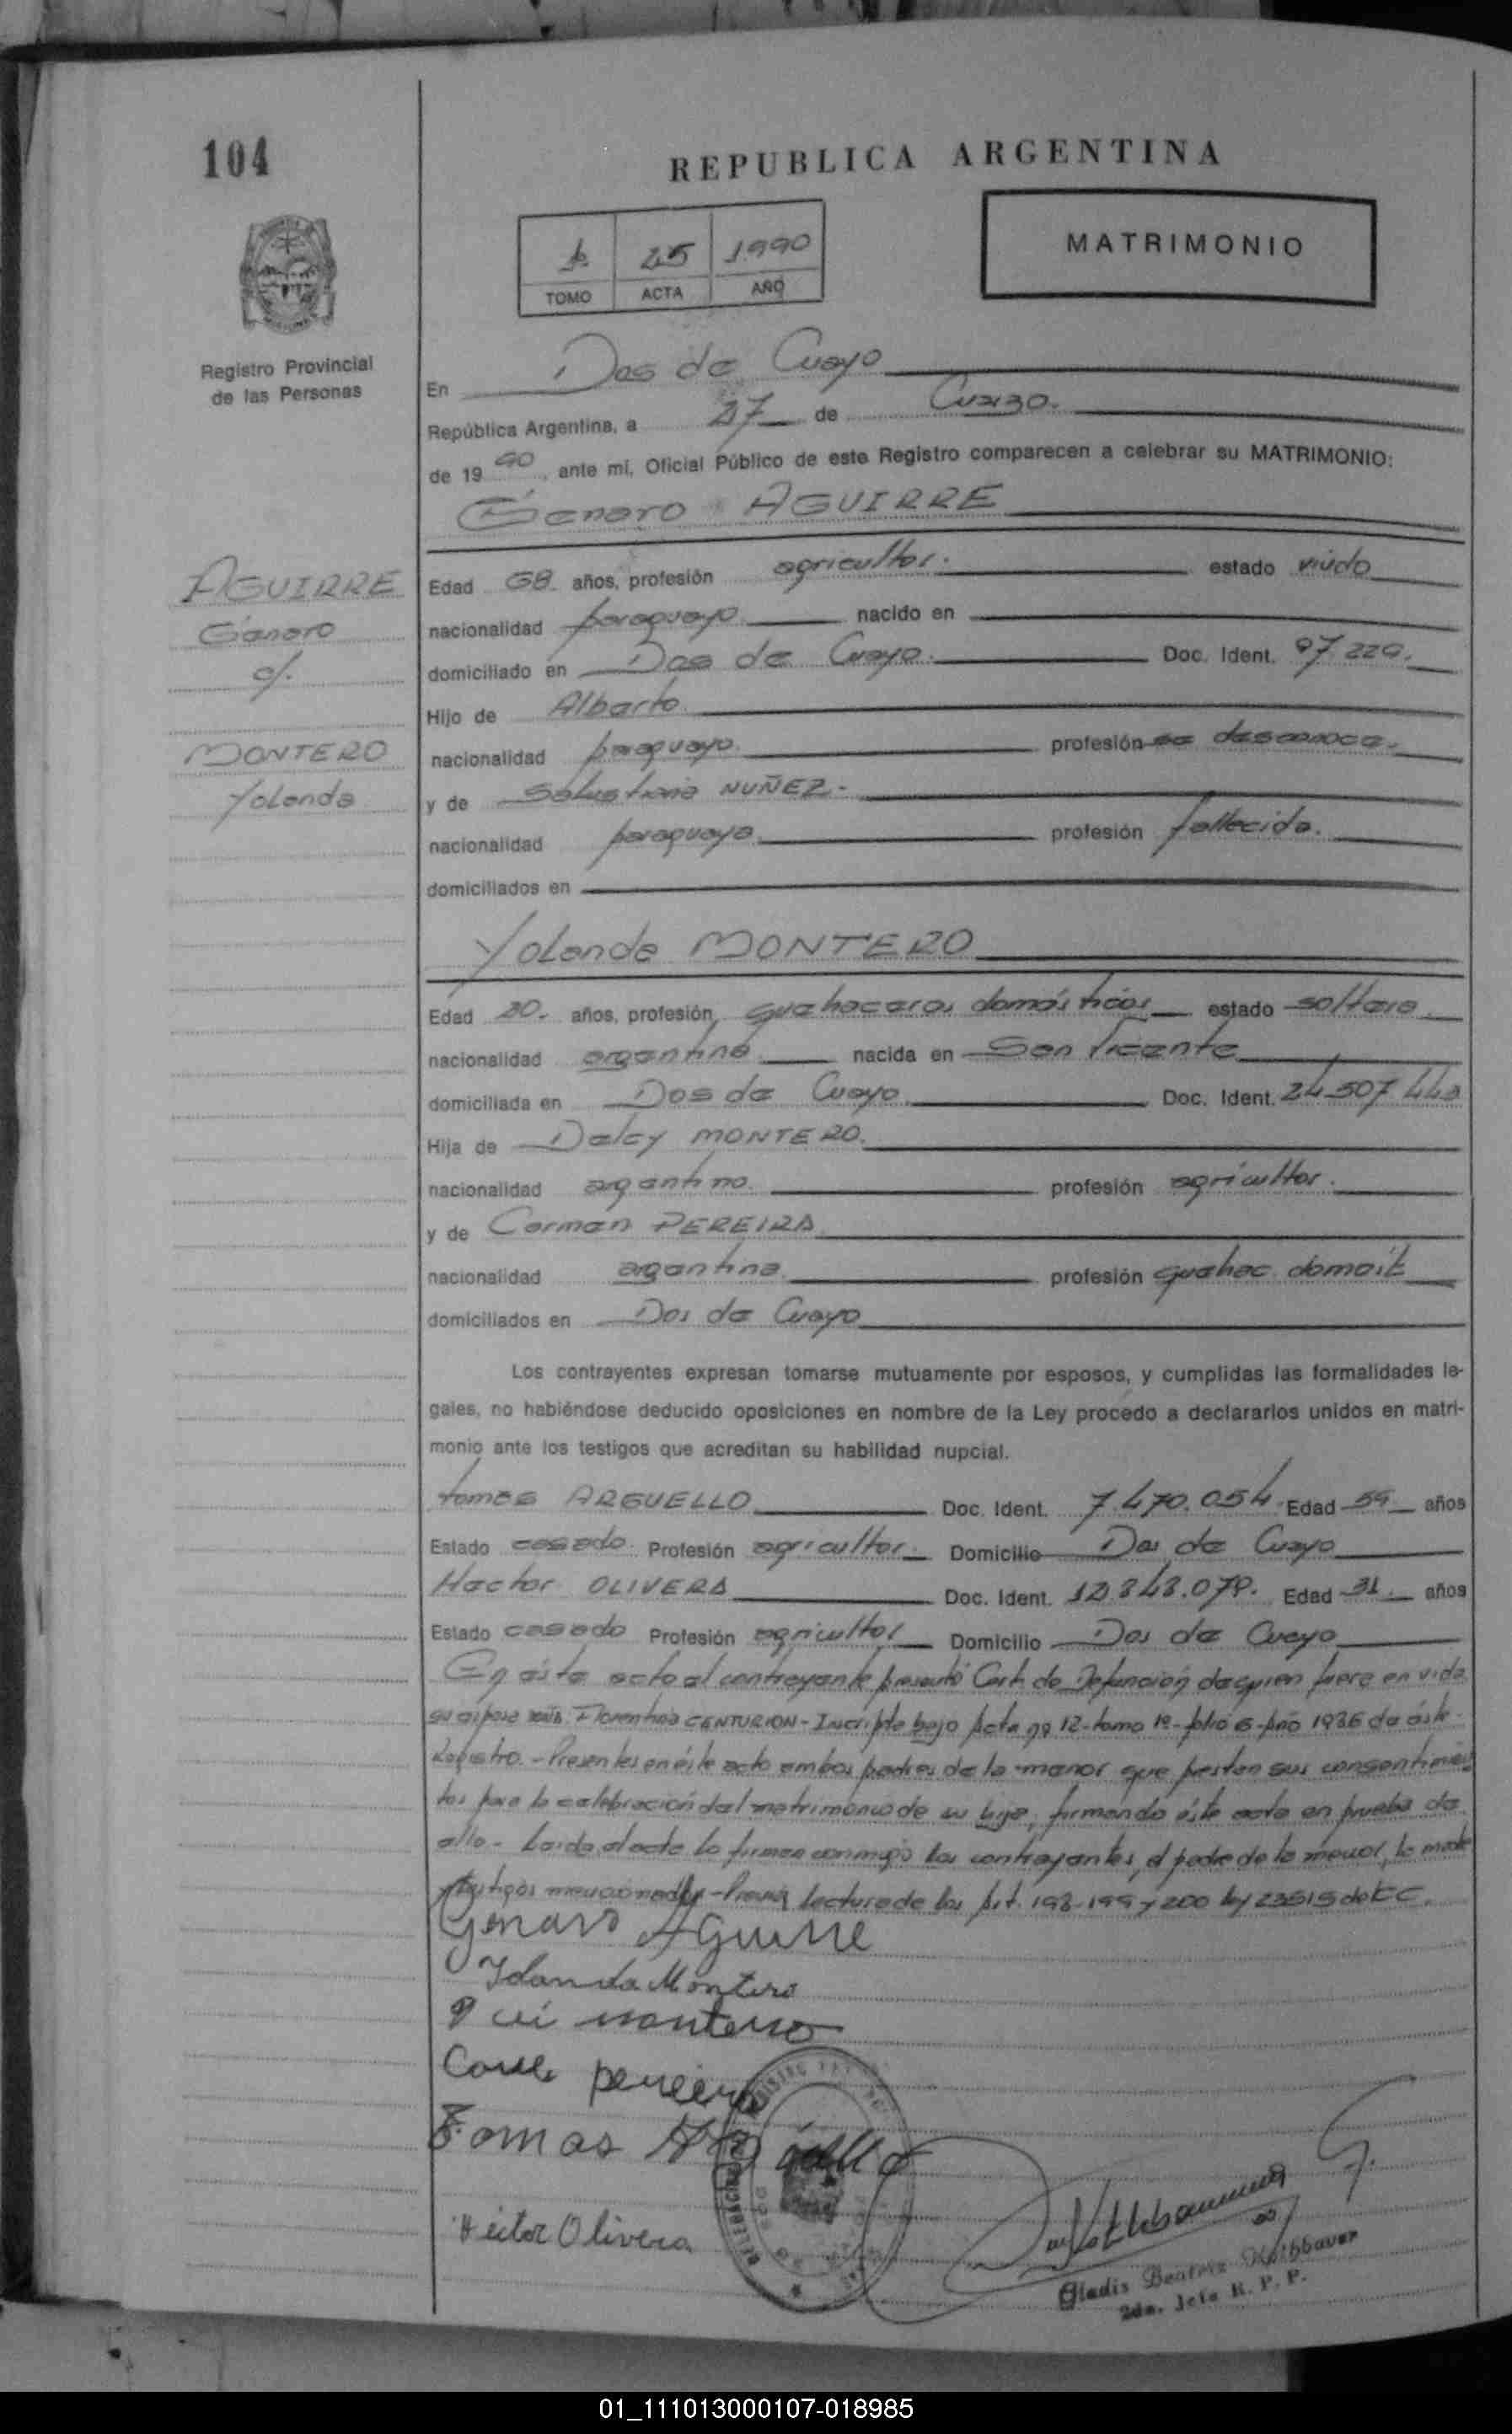 104
REPUBLICA ARGENTINA
MATRIMONIO
45 1990
TOMO ACTA AÑO
Registro Provincial
de las Personas
En Dos de Mayo
República Argentina, a 27 de
de 19 90, ante mí, Oficial Público de este Registro comparecen a celebrar su MATRIMONIO:
Genaro AGUIRRE
AGUIRRE
Genaro
c/.
MONTERO
Yolanda
Edad 68 años, profesión agricultor. estado viudo
nacionalidad paraguayo nacido en
domiciliado en Dos de Mayo. Doc. Ident. 97.229.
Hijo de Alberto
nacionalidad paraguayo. profesión se desconoce.
y de Salustiana NUÑEZ.-
nacionalidad paraguaya. profesión fallecida.
domiciliados en
Yolanda MONTERO
Edad 20. años, profesión quehaceres domésticos estado soltera
nacionalidad argentina nacida en San Vicente
domiciliada en Dos de Mayo. Doc. Ident. 24.507.443
Hija de Delcy MONTERO.
nacionalidad argentino. profesión agricultor.
y de Carmen PEREIRA
nacionalidad argentina. profesión quehac. domést.
domiciliados en Dos de Mayo
Los contrayentes expresan tomarse mutuamente por esposos, y cumplidas las formalidades le-
gales, no habiéndose deducido oposiciones en nombre de la Ley procedo a declararlos unidos en matri-
monio ante los testigos que acreditan su habilidad nupcial.
Tomas ARGUELLO Doc. Ident. 7.470.054. Edad 59 años
Estado casado. Profesión agricultor. Domicilio Dos de Mayo
Hector OLIVERA Doc. Ident. 12.343.079. Edad 31. años
Estado casado Profesión agricultor Domicilio Dos de Mayo
En éste acto el contrayente presentó Cert. de Defunción de quien fuera en vida
su esposa Florentina CENTURION - Inscripta bajo Acta nº 12 - tomo 1º - folio 6 - Año 1986 de éste
Registro. - Presentes en éste acto ambos padres de la menor que prestan sus consentimien
tos para la celebración del matrimonio de su hija, firmando éste acta en prueba de
ello - Leida el acta la firman conmigo los contrayentes, el padre de la menor, la madre
y testigos mencionados - Previa lectura de los Art. 198-199 y 200 ley 23515 del C C.
Genaro Aguirre
Yolanda Montero
montero
pereira
Tomas Arguello
Héctor Olivera
Gladis Beatriz
2da. Jefa R. P. P.
01_111013000107-018985